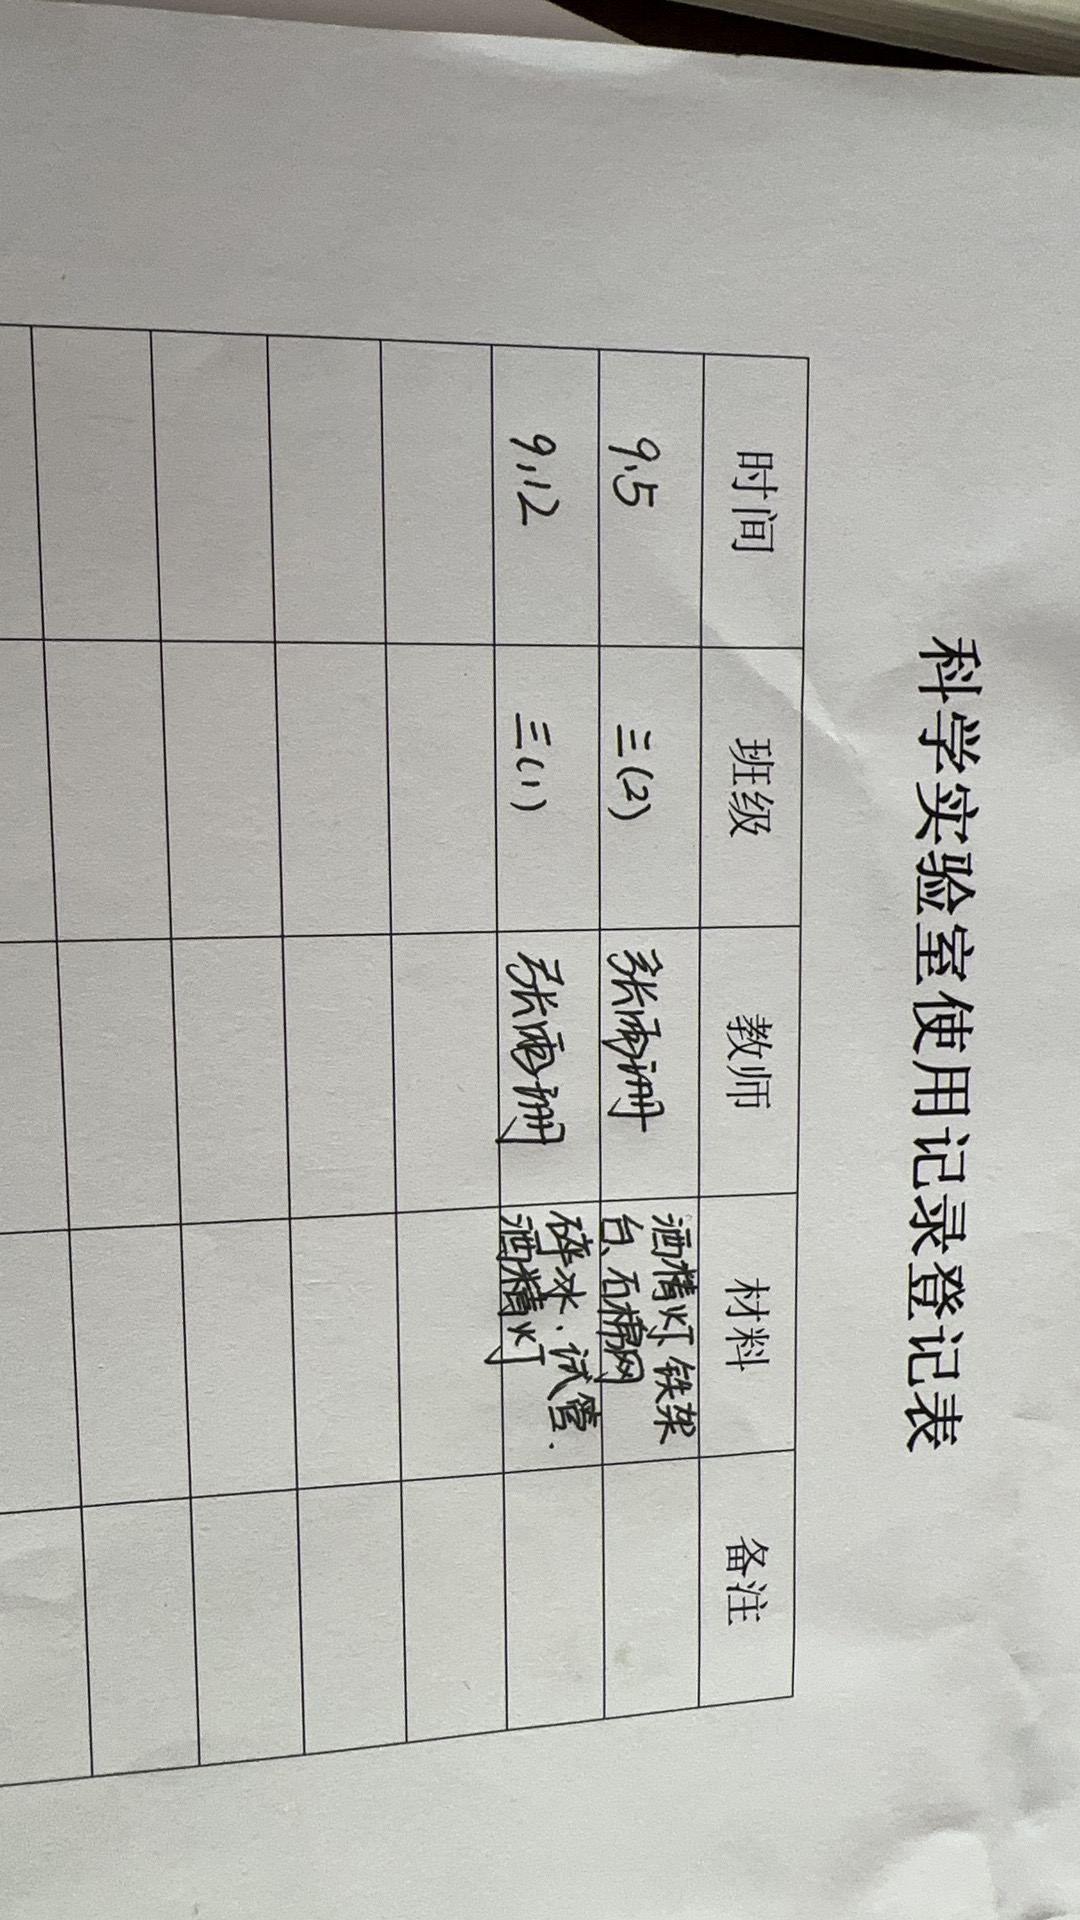 科学实验室使用记录登记表
时间 班级 教师 材料 备注
9.5 三(2) 张雨珊 酒精灯、铁架
台、石棉网
9.12 三(1) 张雨珊 碎冰、试管、
酒精灯